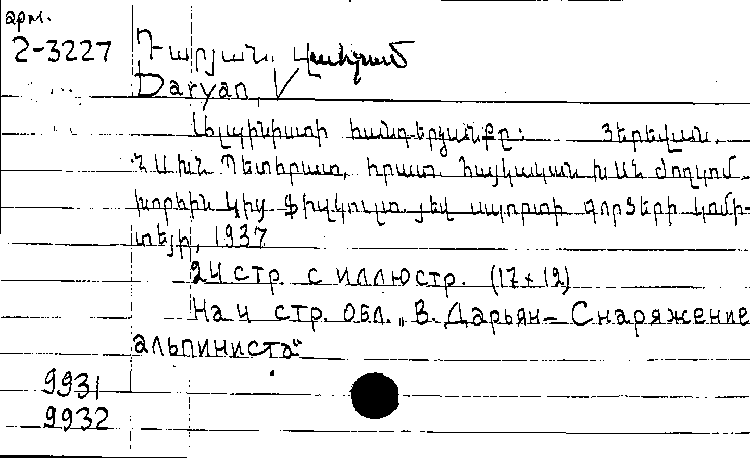 арм.
2-3227 Դարյան, Վահրամ
Daryan, V
Ալպինիստի հանդերձանքը: Յերեվան,
Հ.Ս.Խ.Հ. Պետհրատ, հրատ. հայկական ԽՍՀ ժողկոմ-
խորհին կից ֆիզկուլտ. յեվ սպորտի գործերի կոմի-
տեյի, 1937
24 стр. с иллюстр. (17 × 12)
На 4 стр. обл. „В. Дарьян – Снаряжение
альпиниста"
9931
9932